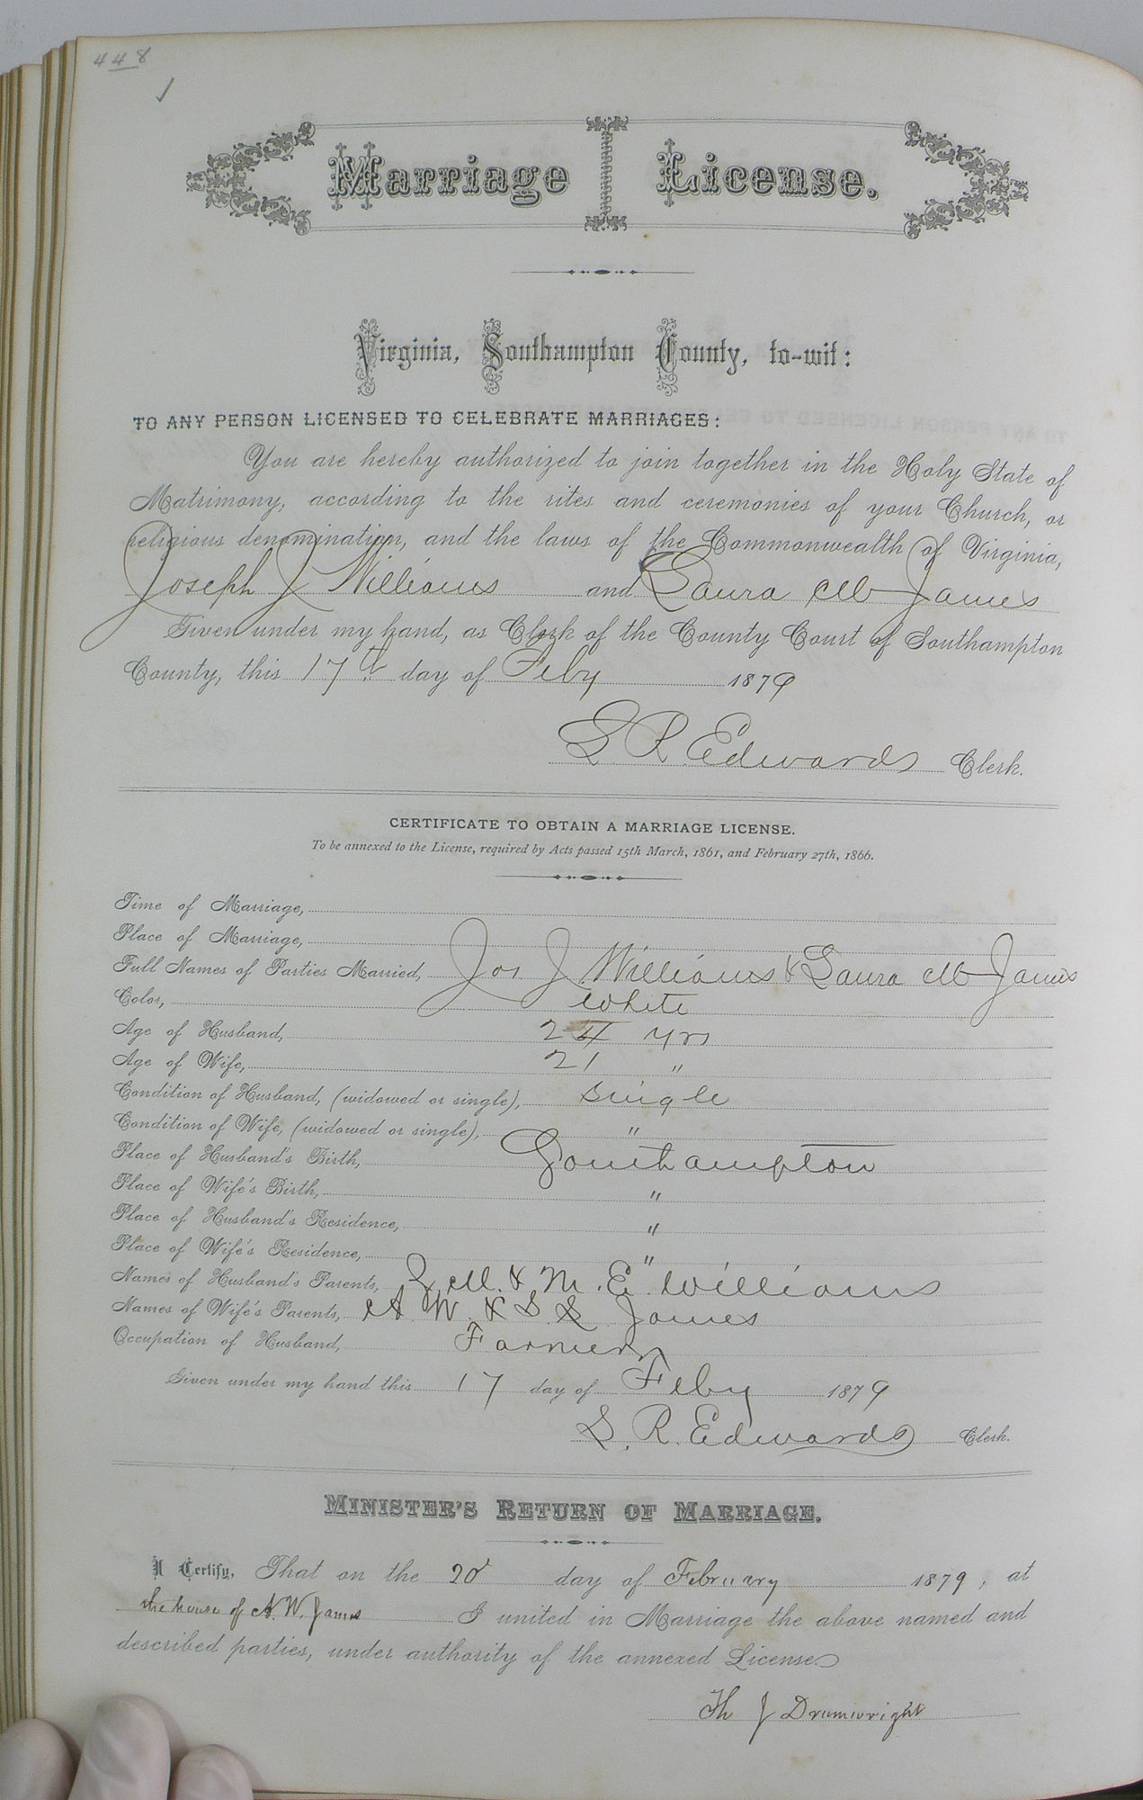 448
Marriage License.
Virginia, Southampton County, to-wit:
TO ANY PERSON LICENSED TO CELEBRATE MARRIAGES:
You are hereby authorized to join together in the Holy State of
Matrimony, according to the rites and ceremonies of your Church, or
religious denomination, and the laws of the Commonwealth of Virginia,
Joseph J Williams and Laura M James
Given under my hand, as Clerk of the County Court of Southampton
County, this 17th day of Feby 1879
L R Edwards Clerk.
CERTIFICATE TO OBTAIN A MARRIAGE LICENSE.
To be annexed to the License, required by Acts passed 15th March, 1861, and February 27th, 1866.
Time of Marriage,
Place of Marriage,
Full Names of Parties Married, Jos J. Williams & Laura M James
Color, White
Age of Husband, 24 yrs
Age of Wife, 21 "
Condition of Husband, (widowed or single), Single
Condition of Wife, (widowed or single), "
Place of Husband's Birth, Southampton
Place of Wife's Birth, "
Place of Husband's Residence, "
Place of Wife's Residence, "
Names of Husband's Parents, M. & M. E. Williams
Names of Wife's Parents, A W. & S. James
Occupation of Husband, Farmer
Given under my hand this 17 day of Feby 1879
L. R. Edwards Clerk.
MINISTER'S RETURN OF MARRIAGE.
I Certify, That on the 20 day of February 1879, at
the house of A. W. James I united in Marriage the above named and
described parties, under authority of the annexed License
Th J Drumwright